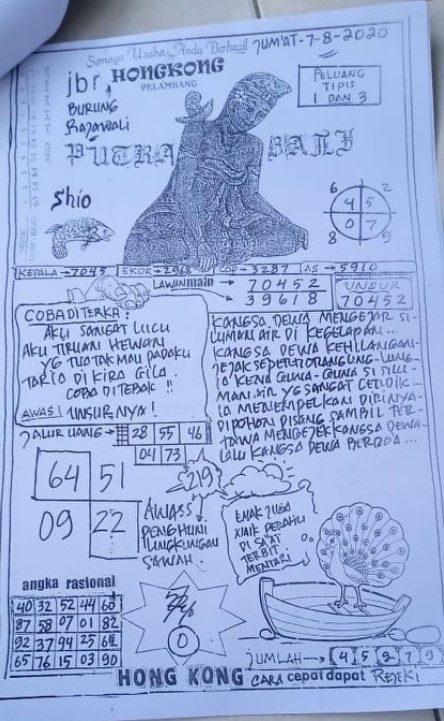 Semoga Usaha Anda Berhasil
JUM'AT-7-8-2020
jbr HONGKONG
PELAMBANG
BURUNG
Rajawali
PELUANG
TIPIS
1 DAN 3
PUTRA BALI
Shio
6 2
4 5
0 7
8 9
KEPALA → 7045 EKOR → 2968 COP → 3287 AS → 5910
LAWAN main → 70452
→ 39618
UNSUR
70452
COBA DITERKA:
AKU SANGAT LUCU
AKU TIRUAN HEWAN
YG TUO TAK MAU PADAKU
TAR IO DI KIRA GILA.
COBA DITEBAK !!
AWAS! UNSURNYA!
KANGSA DEWA MENGEJAR SI-
LUMAN AIR DI KEGELAPAN...
KANGSA DEWA KEHILANGAN-
JEJAK SEPERTI ORANG LING-LUNG-
IA KENA GUNA-GUNA SI SILU-
MAN AIR YG SANGAT CERDIK...
IA MENEMPELKAN DIRINYA-
DIPOHON PISANG SAMBIL TER-
TAWA MENGEJEK KANGSA DEWA-
LALU KANGSA DEWA BERDOA...
JALUR UANG → 28 55 46
04 73
64 51
09 22
219
AWASS
PENGHUNI
LINGKUNGAN
SAWAH.
ENAK JUGA
NAIK PERAHU
DI SAAT
TERBIT
MENTARI
angka rasional
40 32 52 44 60
87 58 07 01 82
92 37 94 25
65 76 15 03 90
0
JUMLAH → 4 5 2 7 9
HONG KONG CARA cepat dapat REJEKI